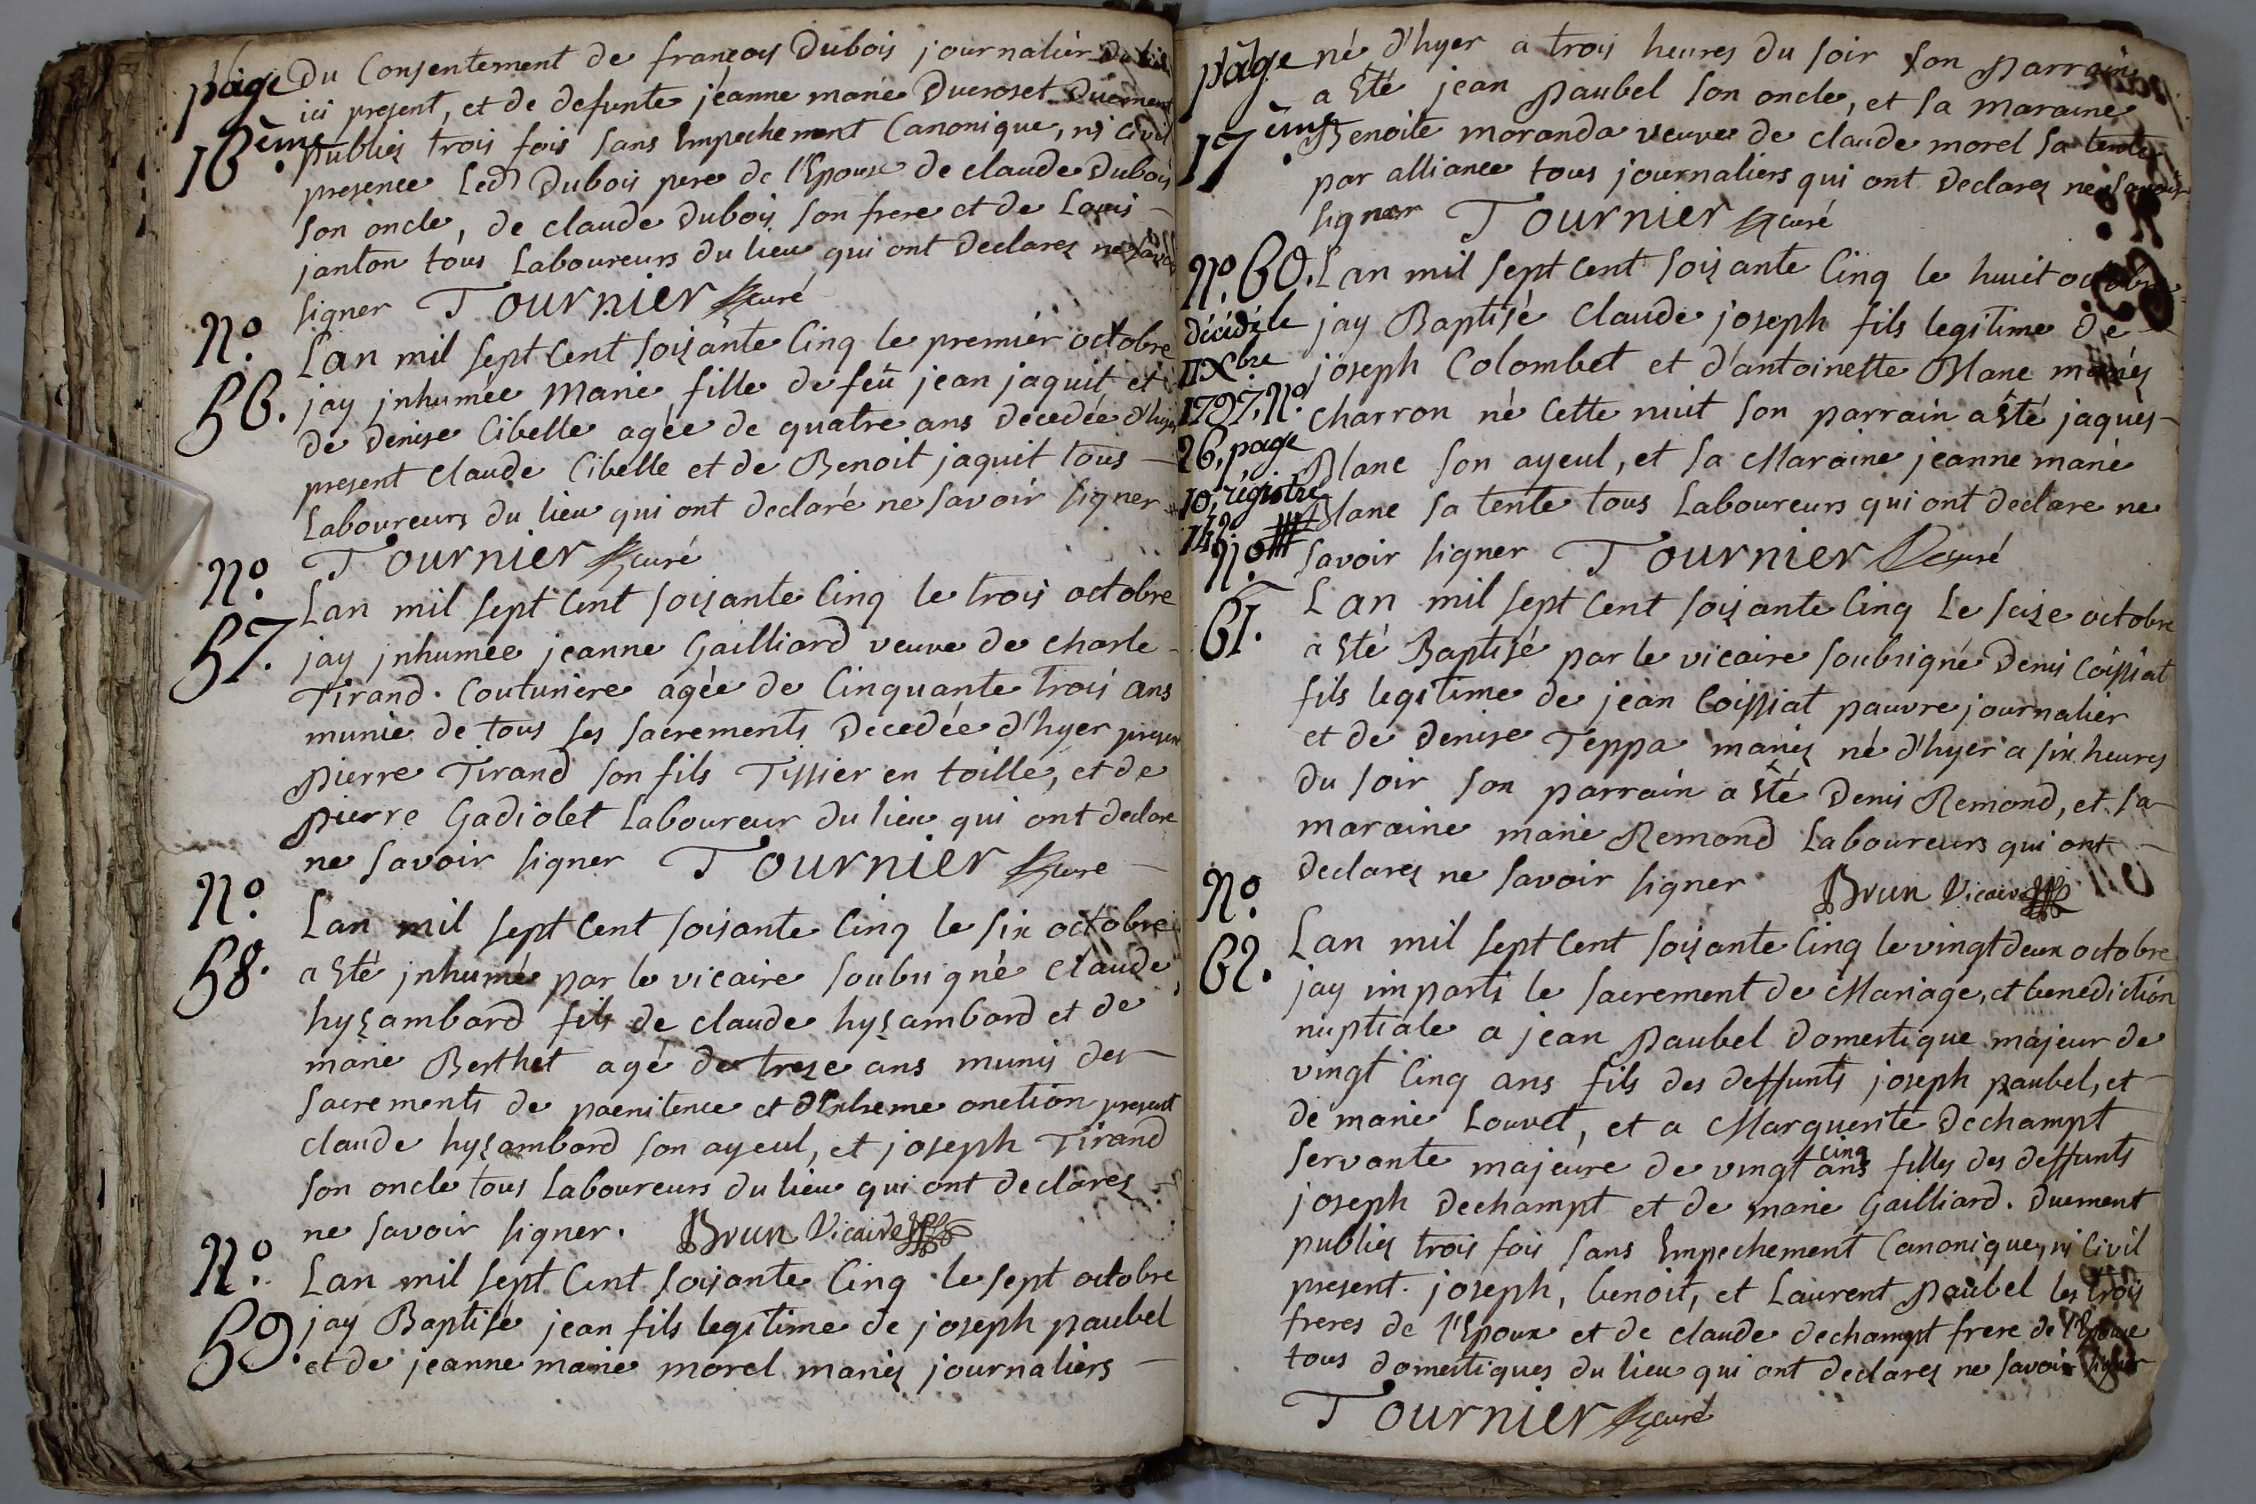 page
16ème.
Du Consentement de françois Dubois journalier
ici present, et de defunte jéanne marie Ducroset Duëment
publiez trois fois sans Empechement Canonique, ni Civil
presence led Dubois pere de l'Epouse de claude Dubois
son oncle, de claude Dubois son frere et de Louis
janton tous Laboureurs du lieu qui ont declarez ne savoir
signer Tournier curé
No.
56.
Lan mil sept Cent soisante Cinq le premiér octobre
jay jnhumée Marie fille de feü jean jaquit et
de denise Cibelle agée de quatre ans décedée d'hyer
present claude Cibelle et de Benoit jaquit tous
Laboureurs du lieu qui ont declaré ne savoir signer
Tournier curé
No.
57.
Lan mil sept Cent soisante Cinq le trois octobre
jay jnhumée jeanne Gailliard veuve de charle
Tirand. Couturiere agée de Cinquante trois ans
munie de tous ses sacrements Decedée d'hyer present
pierre Tirand son fils Tissier en toille, et de
pierre Gadiolet Laboureur du lieu qui ont declare
ne savoir signer Tournier cure
No.
58.
Lan mil sept Cent soisante Cinq le six octobre
a Eté jnhumé par le vicaire soubsigné claude
hysambard fils de claude hysambard et de
marie Berthet agé de treze ans munis des
sacrements de paenitence et d'Extreme onction present
claude hysambard son ayeul, et joseph Tirand
son oncle tous Laboureurs du lieu qui ont declarez
ne savoir signer. Brun Vicaire
No.
59.
Lan mil sept Cent soisante Cinq le sept octobre
jay Baptisé jean fils legitime de joseph paubel
et de jeanne marie morel mariez journaliers
page
17ème.
né d'hyer a trois heures du soir son parrain
a Eté jean paubel son oncle, et sa maraine
Benoite moranda veuve de claude morel sa tente
par alliance tous journaliers qui ont declarez ne savoir
signer Tournier curé
No. 60.
décédé le
11 Xbre
1797, No.
26, page
10, régistre
142.
Lan mil sept Cent soisante Cinq le huit octobre
jay Baptisé Claude joseph fils legitime de
joseph Colombet et d'antoinette Blanc mariés
charron né Cette nuit son parrain a Eté jaques
Blanc son ayeul, et sa Maraine jeanne marie
Blanc sa tente tous Laboureurs qui ont declare ne
savoir signer Tournier curé
No.
61.
Lan mil sept Cent soisante Cinq Le seize octobre
a Eté Baptisé par le vicaire soubsigné Denis Coissiat
fils legitime de jean Coissiat pauvre journalier
et de Denise Teppa mariez né d'hyer a six heures
du soir son parrain a Eté Denis Remond, et sa
maraine marie Remond Laboureurs qui ont
declarez ne savoir signer Brun Vicaire
No.
62.
Lan mil sept Cent soisante Cinq le vingt deux octobre
jay imparti le sacrement de Mariage, et benediction
nuptiale a jean paubel Domestique majeur de
vingt Cinq ans fils des deffunts joseph paubel, et
de marie Louvet, et a Marguerite Dechampt
servante majeure de vingt cinq ans filles des deffunts
joseph Dechampt et de marie Gailliard. Duement
publiez trois fois sans Empechement Canonique, ni Civil
present. joseph, benoit, et Laurent paubel les trois
freres de l'Epoux et de claude dechampt frere de l'Epouse
tous domestiques du lieu qui ont declarez ne savoir signer
Tournier curé